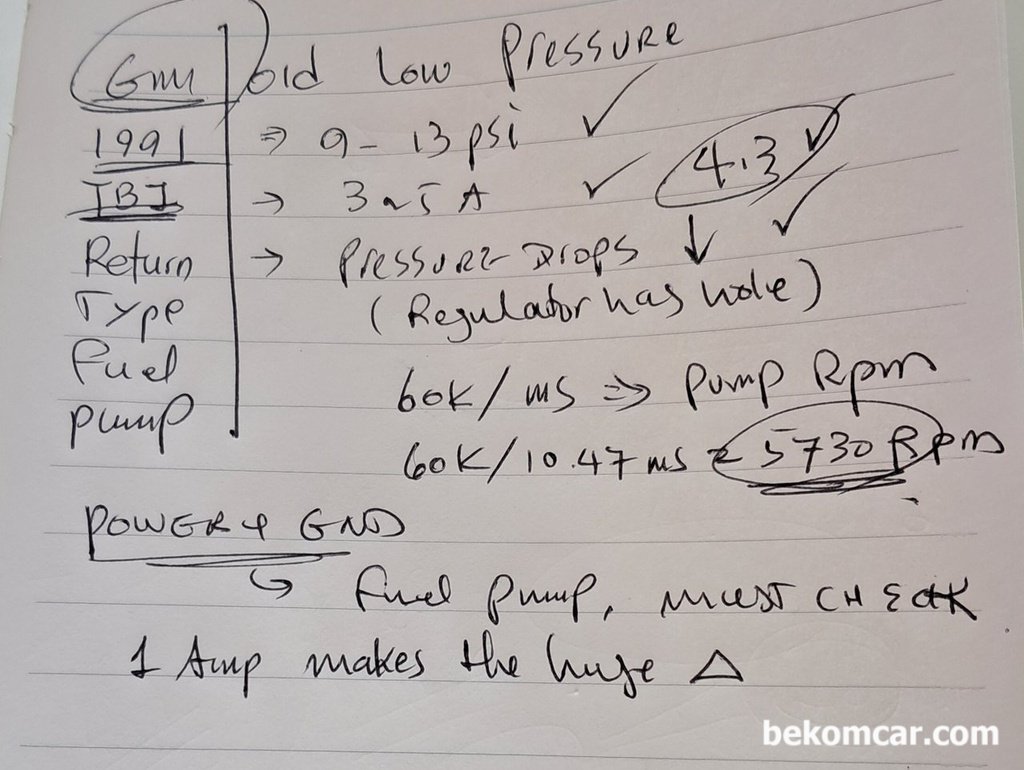 GM old Low Pressure
1991 ⇒ 9 - 13 psi ✓ 4.3 ✓
TBI → 3 ~ 5 A ✓ ↓ ✓
Return → Pressure Drops
Type (Regulator has hole)
Fuel
Pump
60K / ms ⇒ Pump Rpm
60K / 10.47 ms = 5730 Rpm
POWER + GND
↳ fuel pump, must CHECK
1 Amp makes the huge Δ
bekomcar.com